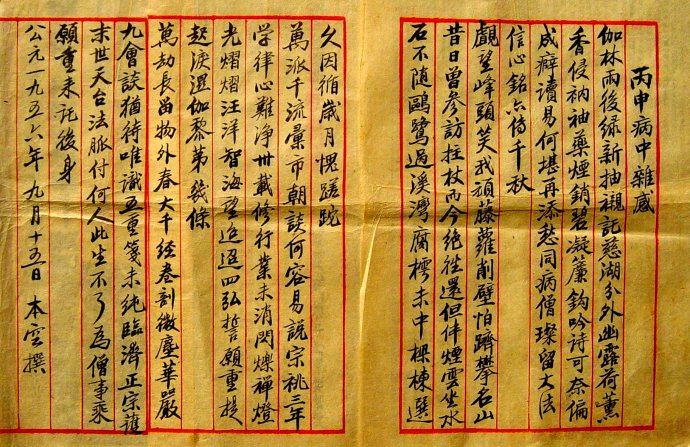 丙申病中雜感
伽林雨後绿新抽襯託慈湖分外幽露荷薰
香侵衲袖藥煙銷碧凝簾鈎吟诗可奈偏
成癖讀易何堪再添愁同病僧璨留大法
信心銘六傳千秋
覷望峰頭笑我頑藤蘿削壁怕躋攀名山
昔日曾參訪拄杖而今绝往還但伴煙雲坐水
石不随鷗鷺過溪灣腐樗未中樑棟選
久因循歲月愧蹉跎
萬派千流彙市朝談何容易說宗祧三年
学律心難淨卅載修行業未消閃爍禪燈
光熠熠汪洋智海望迢迢四弘誓願重提
起淚濕伽黎第幾條
萬劫長留物外春大千經卷剖微塵華嚴
九會談猶待唯識五重箋未純臨濟正宗護
末世天台法脈付何人此生不了為僧事乘
願重来託後身
公元一九五六年九月十五日 本空撰